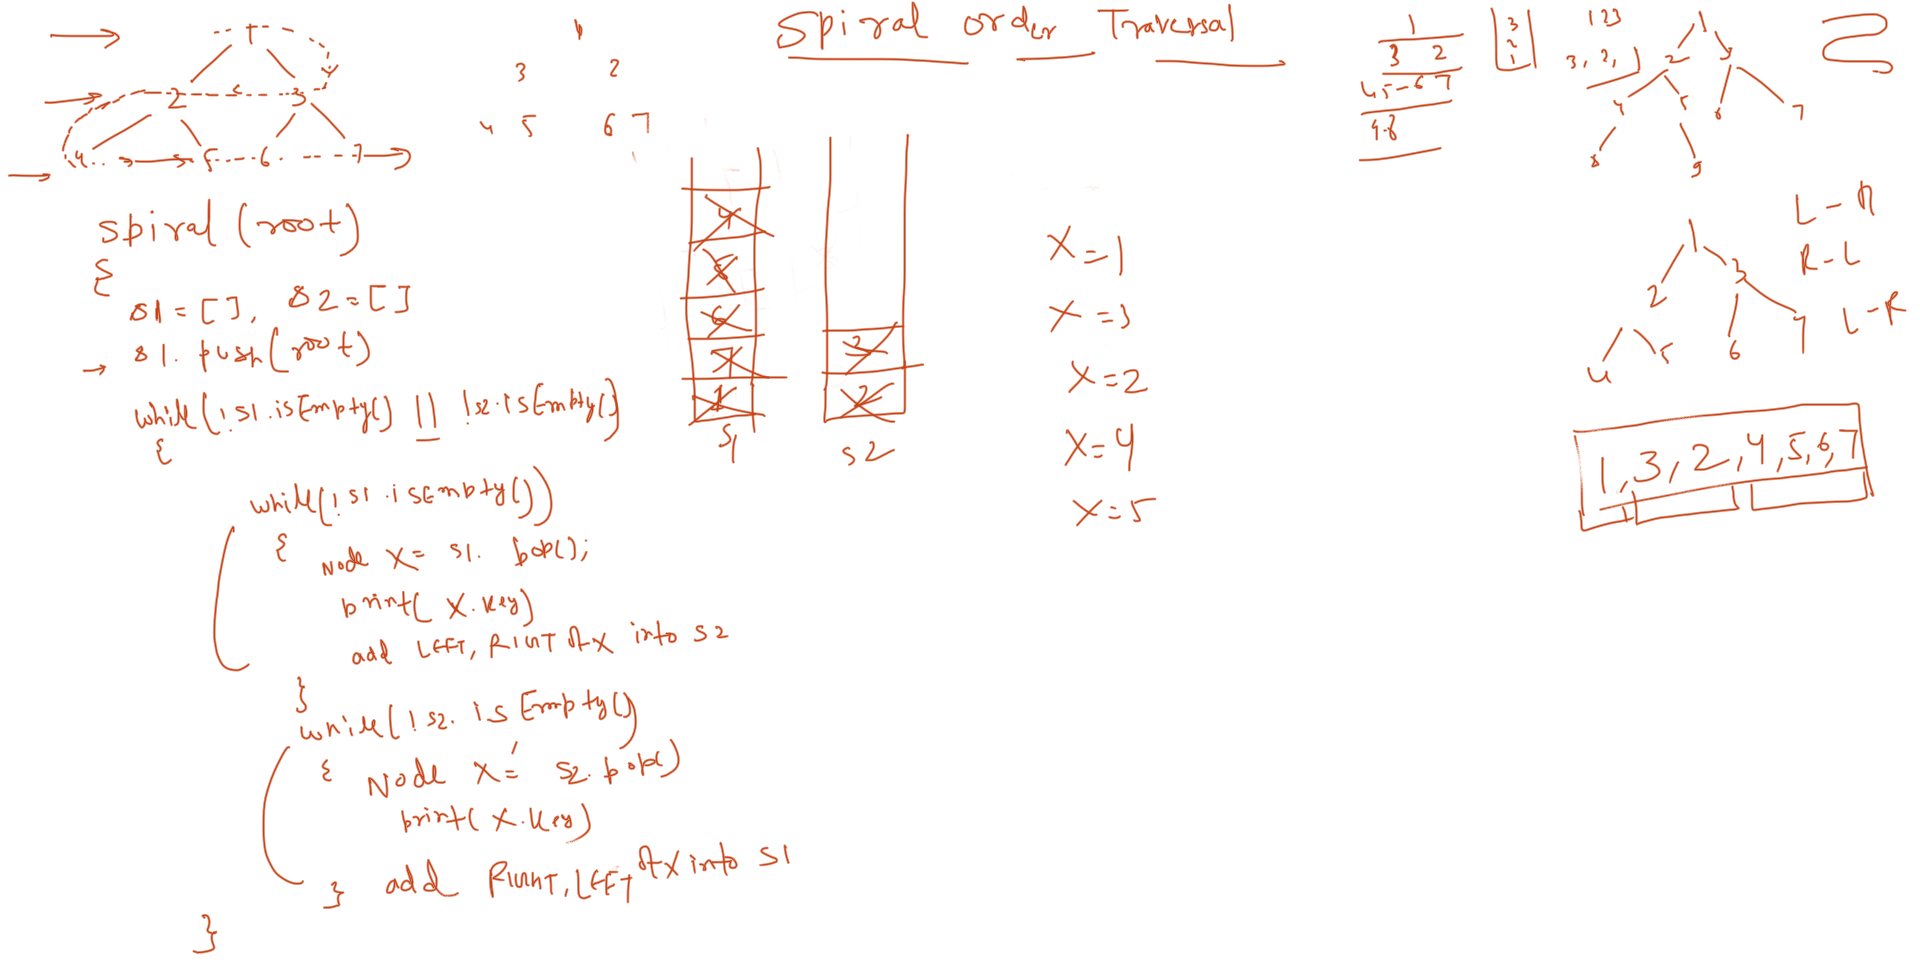 Spiral order Traversal
1
2 3
4 5 6 7
1
3 2
4 5 6 7
spiral (root)
{
s1 = [], s2 = []
s1. push(root)
while(!s1.isEmpty() || !s2.isEmpty())
{
while(!s1.isEmpty())
{
Node X = s1. pop();
print( X.key)
add LEFT, RIGHT of X into s2
}
while(!s2. isEmpty()
{ Node X = s2. pop()
print( X.key)
} add RIGHT, LEFT of X into s1
}
4
5
6
7
1
S1
3
2
S2
X=1
X=3
X=2
X=4
X=5
1
3 2
4 5 - 6 7
3
2
1
1 2 3
3, 2, 1
1
2 3
4 5 6 7
8 9
L - R
R - L
L - R
1
2 3
4 5 6 7
1, 3, 2, 4, 5, 6, 7